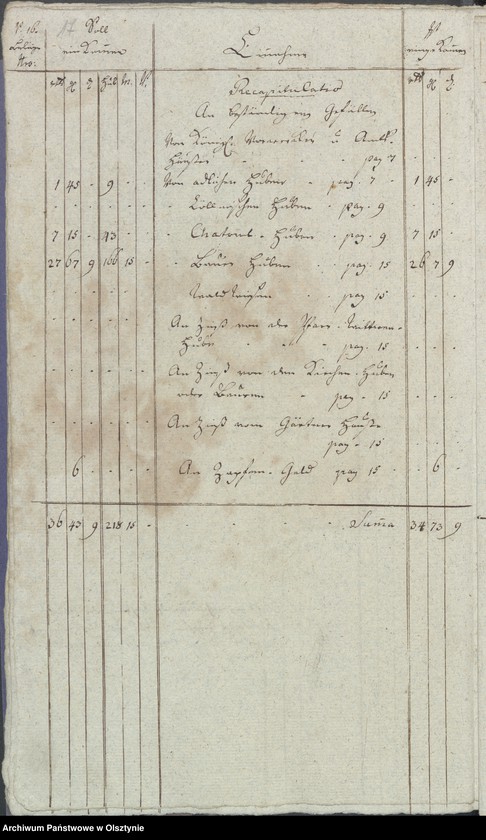 17 Soll Ist
Einnahme
Recapitulatio
An beständigen Gefällen
Von Königl. Vorwerken u Amts
Häuser pag 7
1 45 - 9 - - Von adlichen Huben - pag. 7 - 1 45 -
Cöllmischen Huben - pag. 9
7 15 - 43 - - Chatoul-Huben - pag. 9 7 15 -
27 67 9 166 15 - Bauer Huben pag. 15 26 7 9
pag 15
An Zinß von der Pfarr-
Hube pag. 15
An Zinß von den Kirchen-Huben
oder Bauern pag - 15
An Zinß vom Gärtner Häuser
pag - 15
- 6 - - - - An Zapfen-Geld pag 15 - 6 -
36 43 9 218 15 - Summa 34 73 9
Archiwum Państwowe w Olsztynie